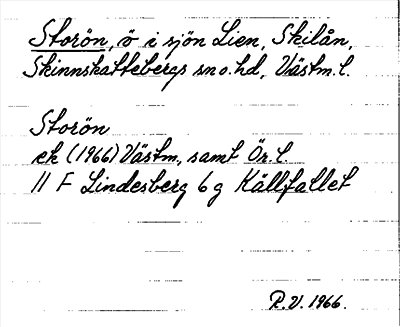 Storön, ö i sjön Lien, Skilån,
Skinnskattebergs sn o. hd, Västm. l.
Storön
ek (1966) Västm., samt Ör. l.
11 F Lindesberg 6 g Källfallet
R.V. 1966.